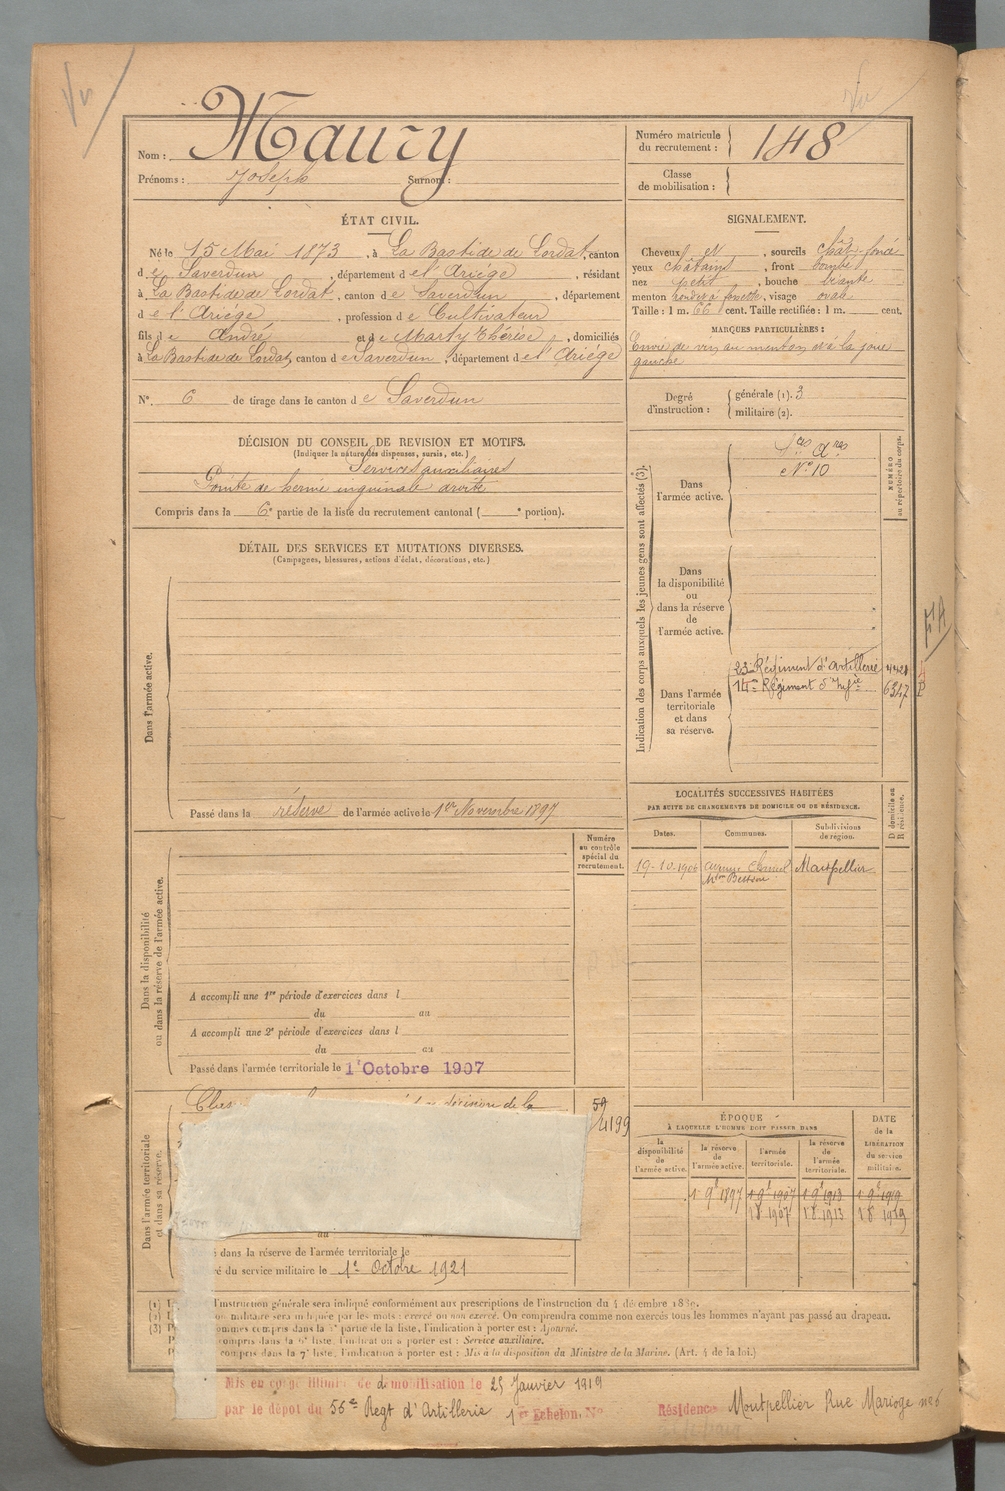 Vu
Vu
Nom : Maury
Prénoms : Joseph Surnom :
Numéro matricule du recrutement : 148
Classe de mobilisation :
ÉTAT CIVIL.
Né le 15 Mai 1873, à La Bastide de Lordat, canton
de Saverdun, département de l'Ariège, résidant
à La Bastide de Lordat, canton de Saverdun, département
de l'Ariège, profession de Cultivateur
fils de André et de Marty Thérèse, domiciliés
à La Bastide de Lordat, canton de Saverdun, département de l'Ariége
N° 6 de tirage dans le canton de Saverdun
SIGNALEMENT.
Cheveux et, sourcils chât. foncé
yeux châtains, front bombé
nez petit, bouche béante
menton rond et à fossette, visage ovale
Taille : 1 m. 66 cent. Taille rectifiée : 1 m. cent.
MARQUES PARTICULIÈRES :
Envie de vin au menton et à la joue
gauche
Degré d'instruction : générale (1). 3
militaire (2).
DÉCISION DU CONSEIL DE REVISION ET MOTIFS.
(Indiquer la nature des dispenses, sursis, etc.)
Services auxiliaires
Pointe de hernie inguinale droite
Compris dans la 6e partie de la liste du recrutement cantonal ( e portion).
DÉTAIL DES SERVICES ET MUTATIONS DIVERSES.
(Campagnes, blessures, actions d'éclat, décorations, etc.)
Dans l'armée active.
Passé dans la réserve de l'armée active le 1er Novembre 1897
Indication des corps auxquels les jeunes gens sont affectés (3).
NUMÉRO au répertoire du corps.
Dans l'armée active.
Sces Ares
N° 10
Dans la disponibilité ou dans la réserve de l'armée active.
Dans l'armée territoriale et dans sa réserve.
23e Régiment d'Artillerie
14e Régiment d'Infie 6347
LOCALITÉS SUCCESSIVES HABITÉES
PAR SUITE DE CHANGEMENTS DE DOMICILE OU DE RÉSIDENCE.
D domicile ou R résidence.
Dates. Communes. Subdivisions de région.
19-10-1906 Montpellier
Dans la disponibilité ou dans la réserve de l'armée active.
Numéro au contrôle spécial du recrutement.
A accompli une 1re période d'exercices dans l
du au
A accompli une 2e période d'exercices dans l
du au
Passé dans l'armée territoriale le 1er Octobre 1907
Dans l'armée territoriale et dans sa réserve.
décision de la
59
4199
du au
dans la réserve de l'armée territoriale le
du service militaire le 1er Octobre 1921
ÉPOQUE
À LAQUELLE L'HOMME DOIT PASSER DANS
la disponibilité de l'armée active. la réserve de l'armée active. l'armée territoriale. la réserve de l'armée territoriale.
DATE de la LIBÉRATION du service militaire.
1 9e 1897 1 9e 1907 1 9e 1913 1 9e 1919
1 8 1907 1 8 1913 1 8 1919
d'instruction générale sera indiqué conformément aux prescriptions de l'instruction du 4 décembre 1889.
militaire sera indiquée par les mots : exercé ou non exercé. On comprendra comme non exercés tous les hommes n'ayant pas passé au drapeau.
hommes compris dans la partie de la liste, l'indication à porter est : Ajourné.
compris dans la 6e liste, l'indication à porter est : Service auxiliaire.
compris dans la 7e liste, l'indication à porter est : Mis à la disposition du Ministre de la Marine. (Art. 4 de la loi.)
Mis en congé illimité de démobilisation le 25 Janvier 1919
par le dépot du 56e Regt d'Artillerie 1er Echelon, N° Résidence Montpellier Rue Marioge no 6